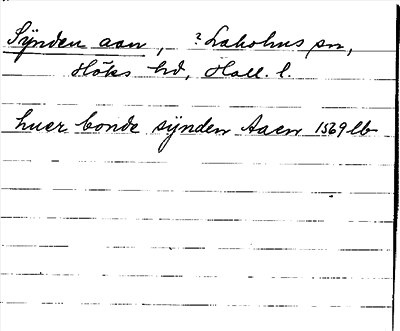 Sÿnden aan, ? Laholms sn,
Höks hd, Hall. l.
huer bonde sÿnden Aaen 1569 lb